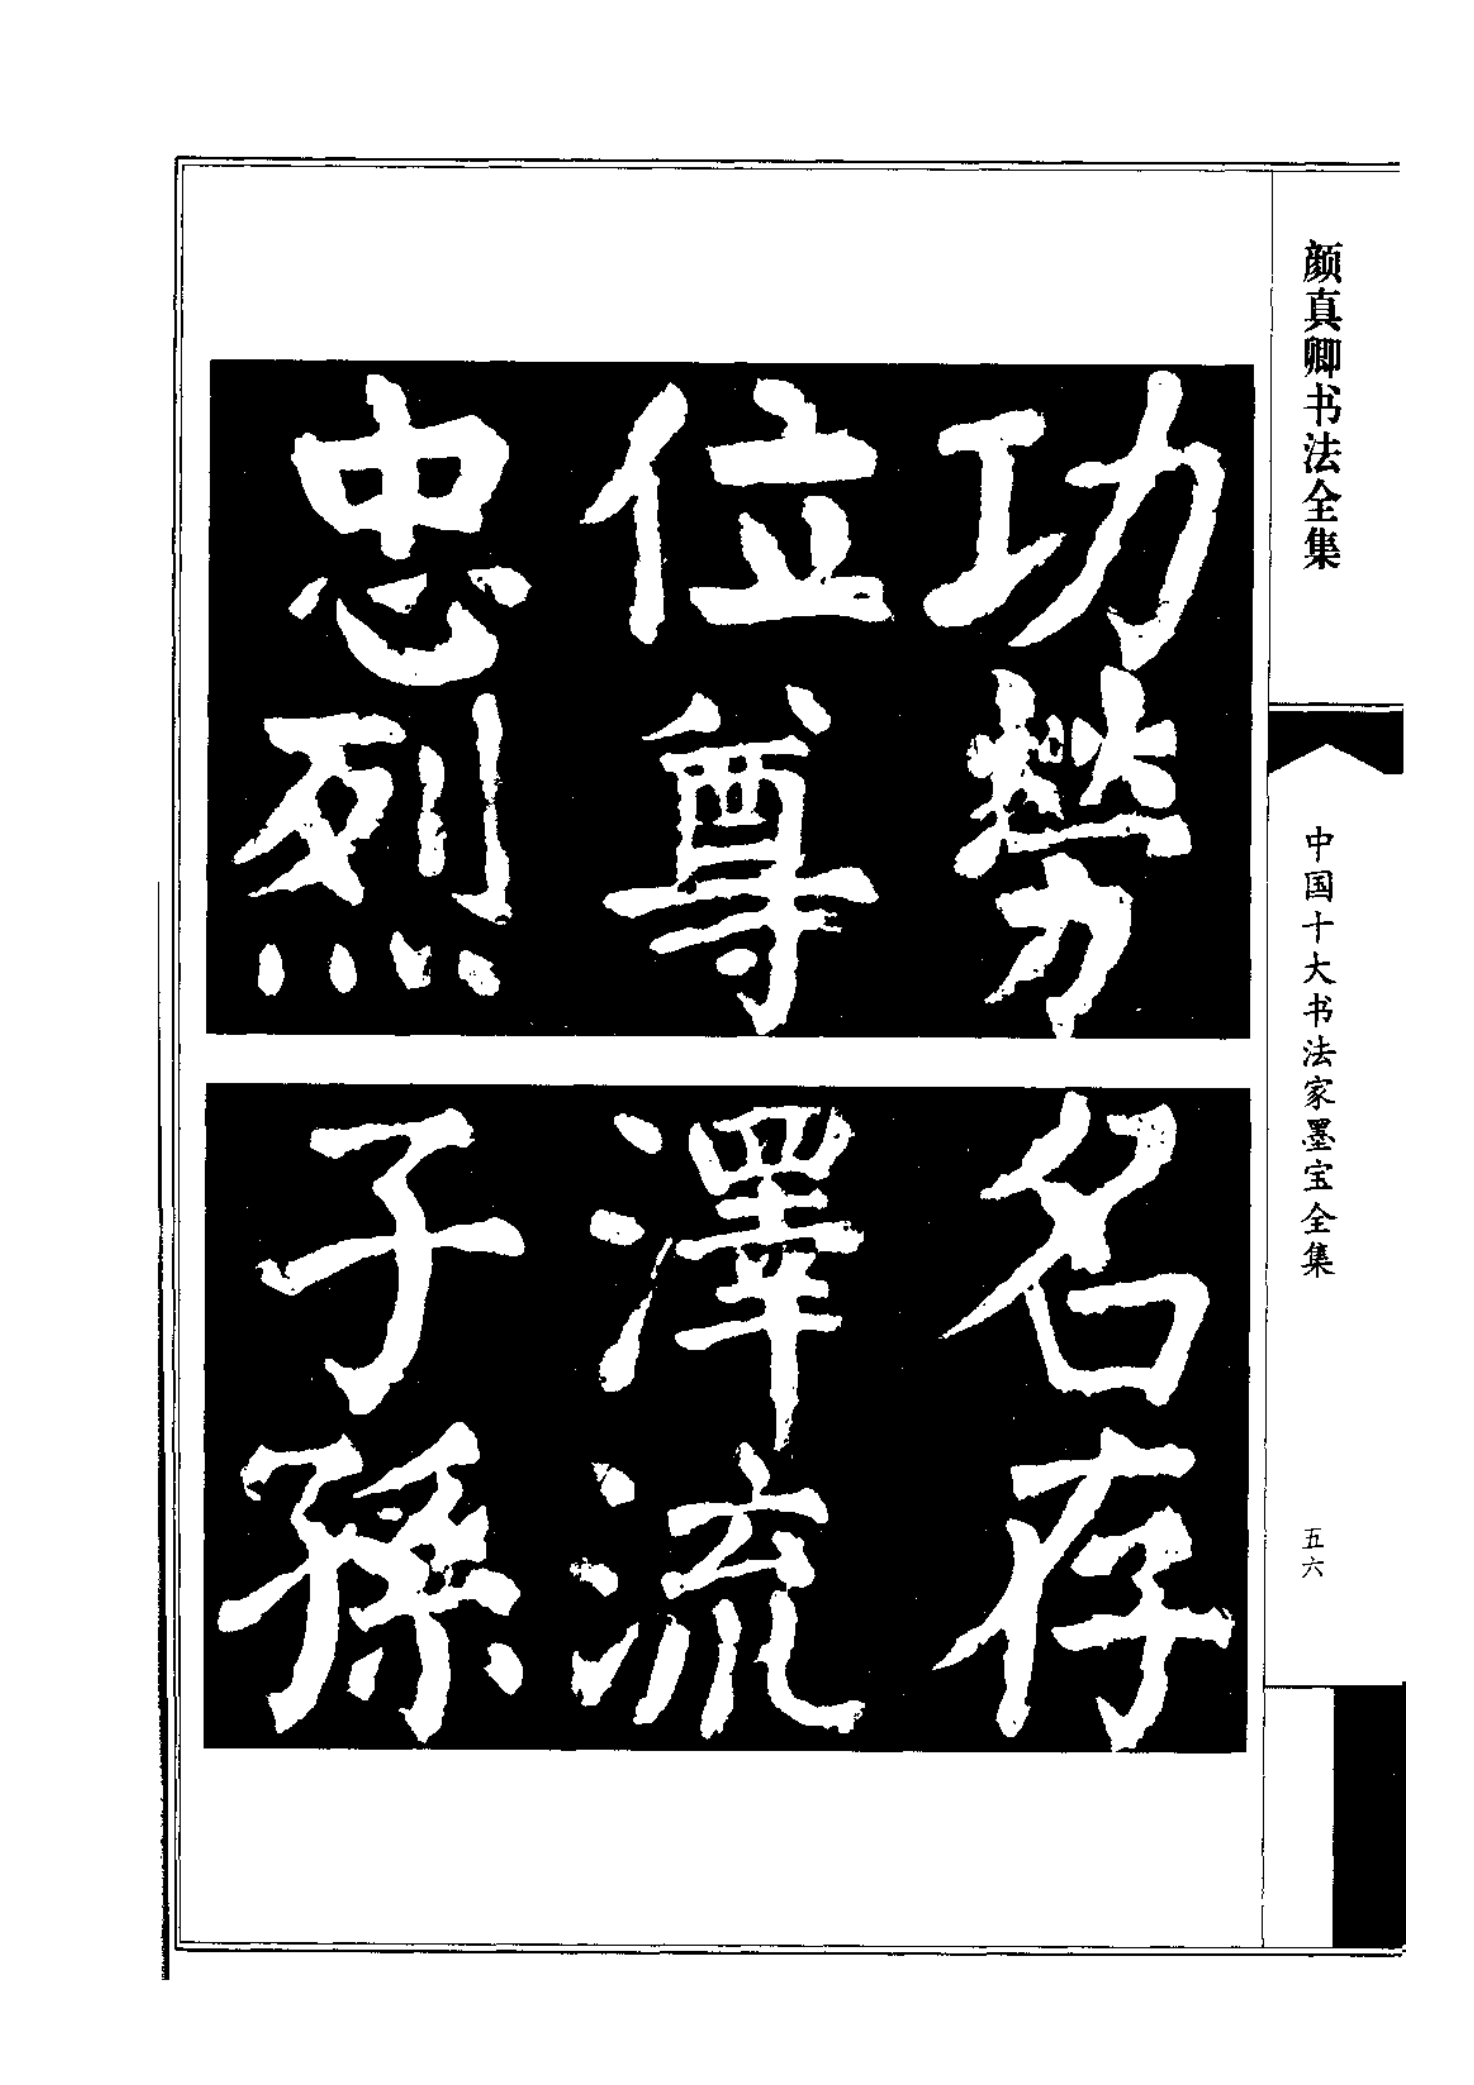 颜真卿书法全集
中国十大书法家墨宝全集
五六
功勞
位尊
忠烈
名存
澤流
子孫